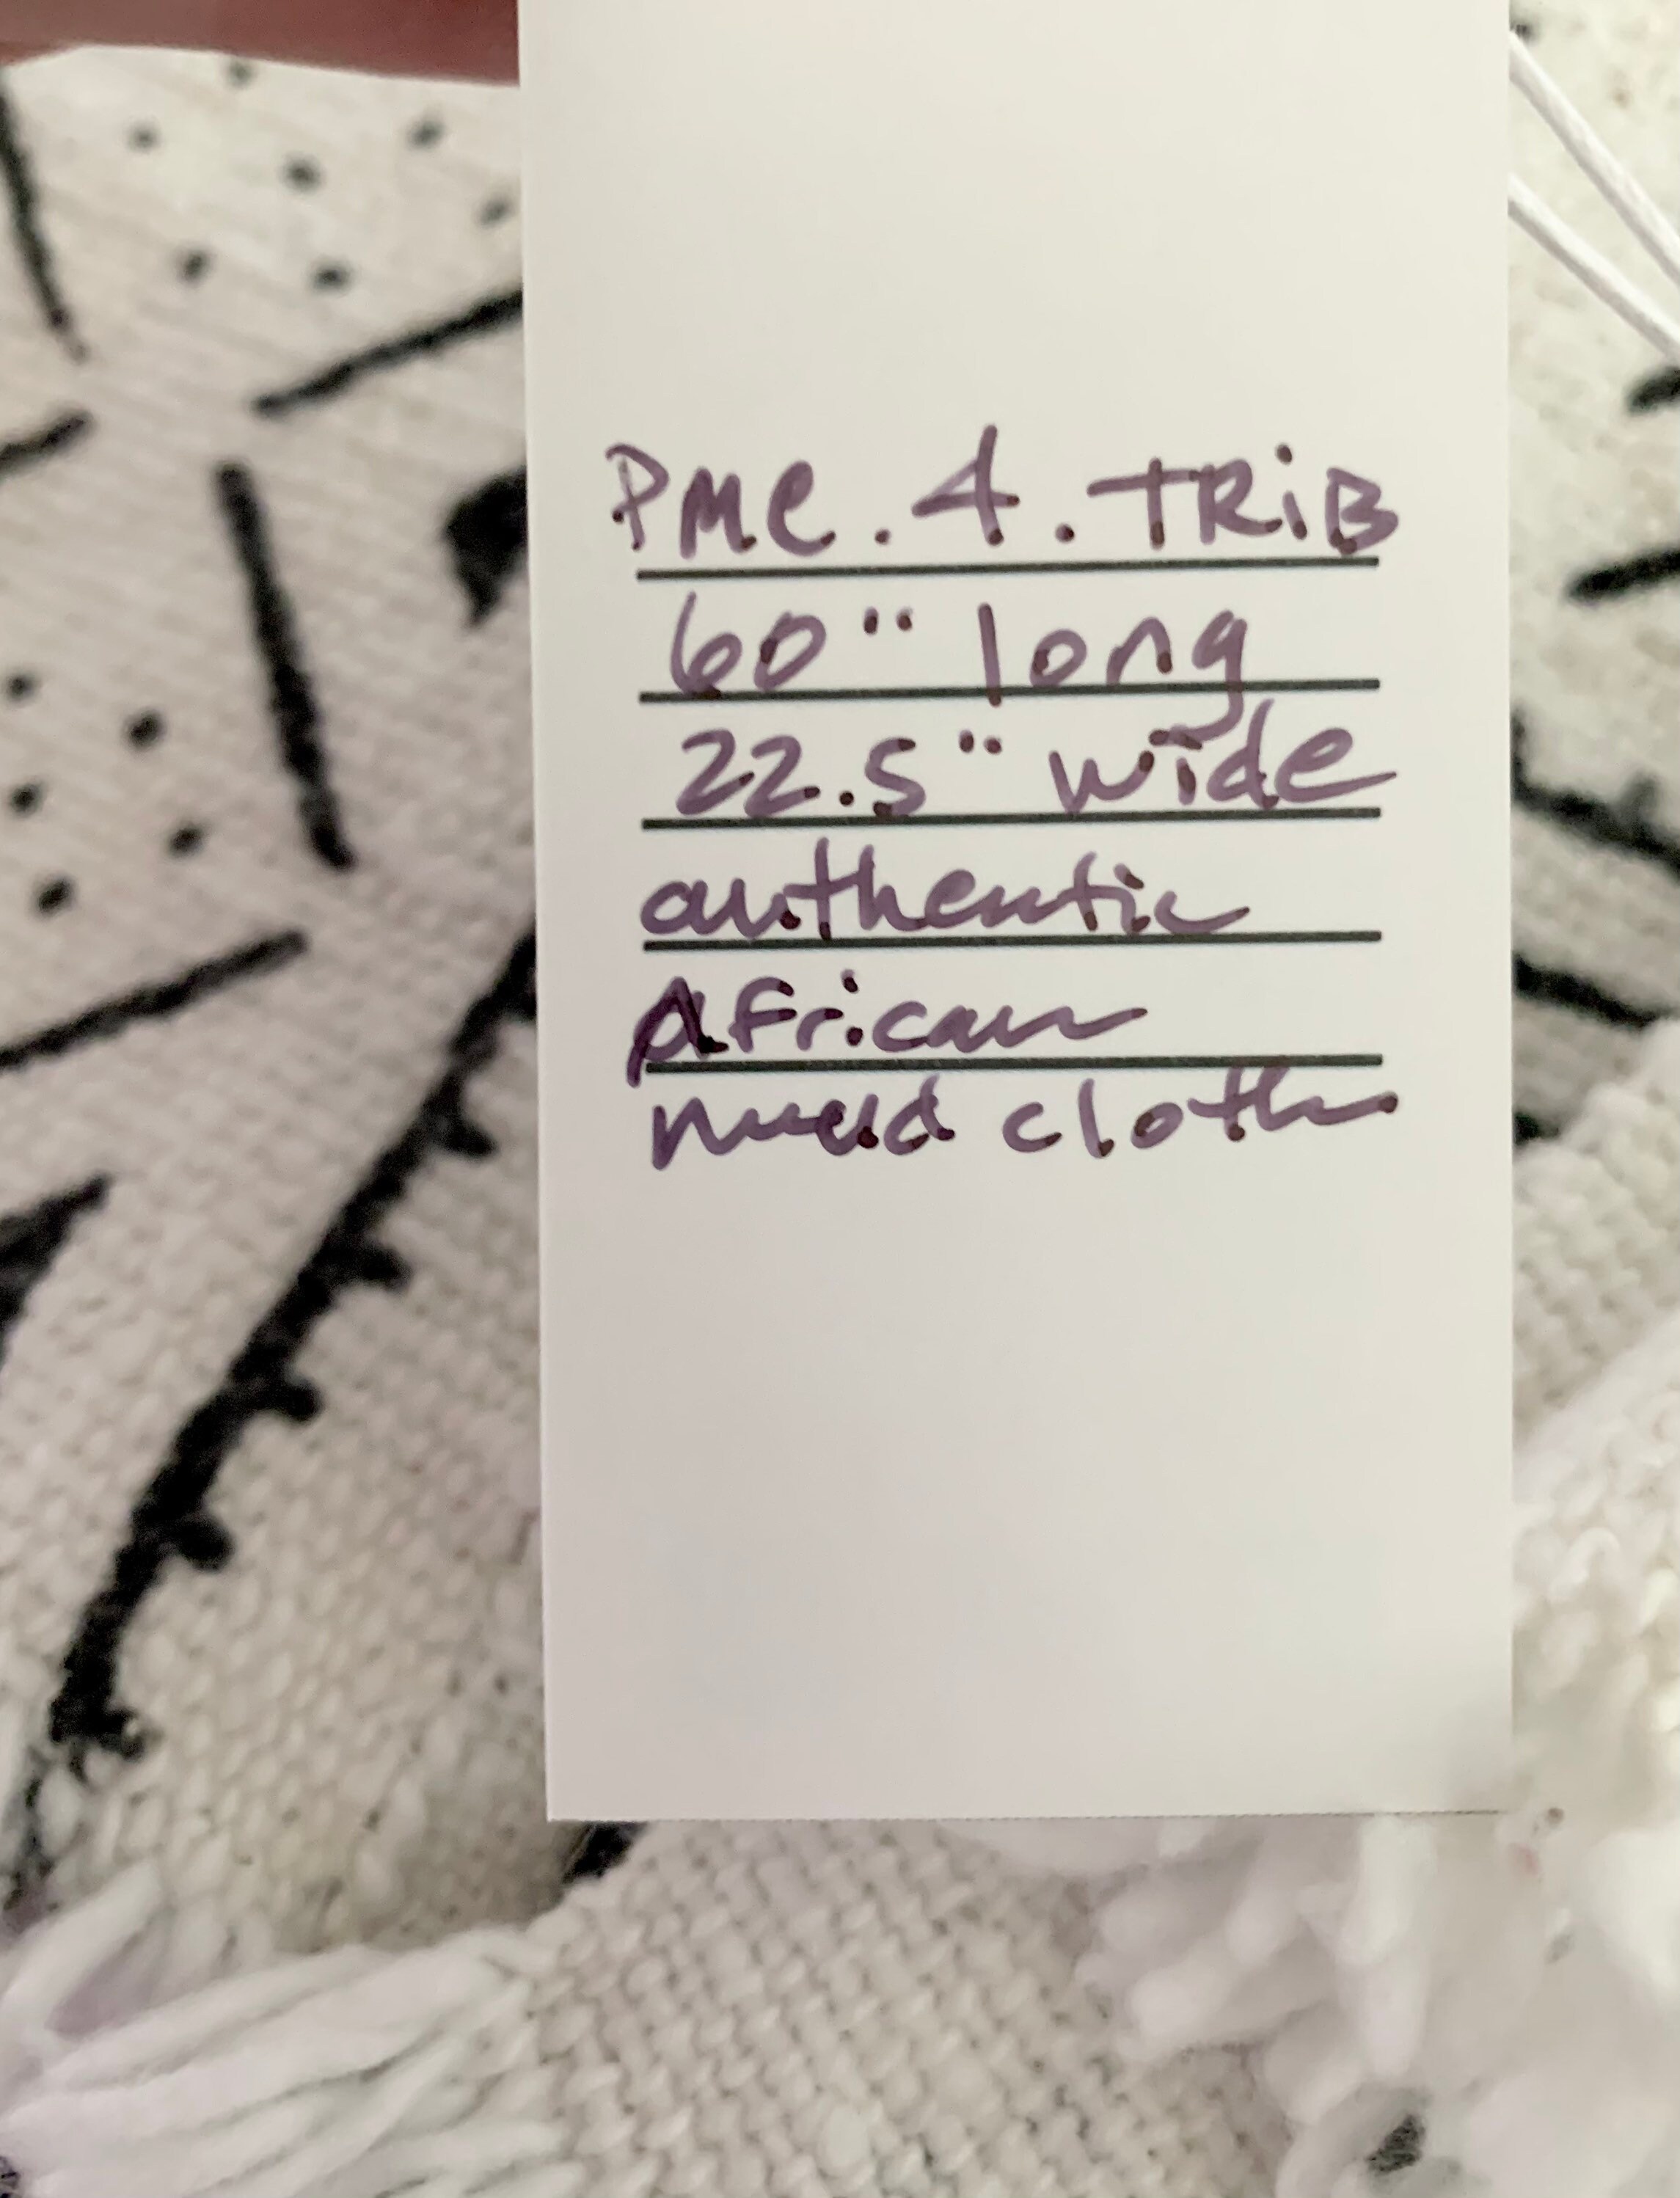 PMC.4.TRiB
60" long
22.5" wide
authentic
African
mud cloth